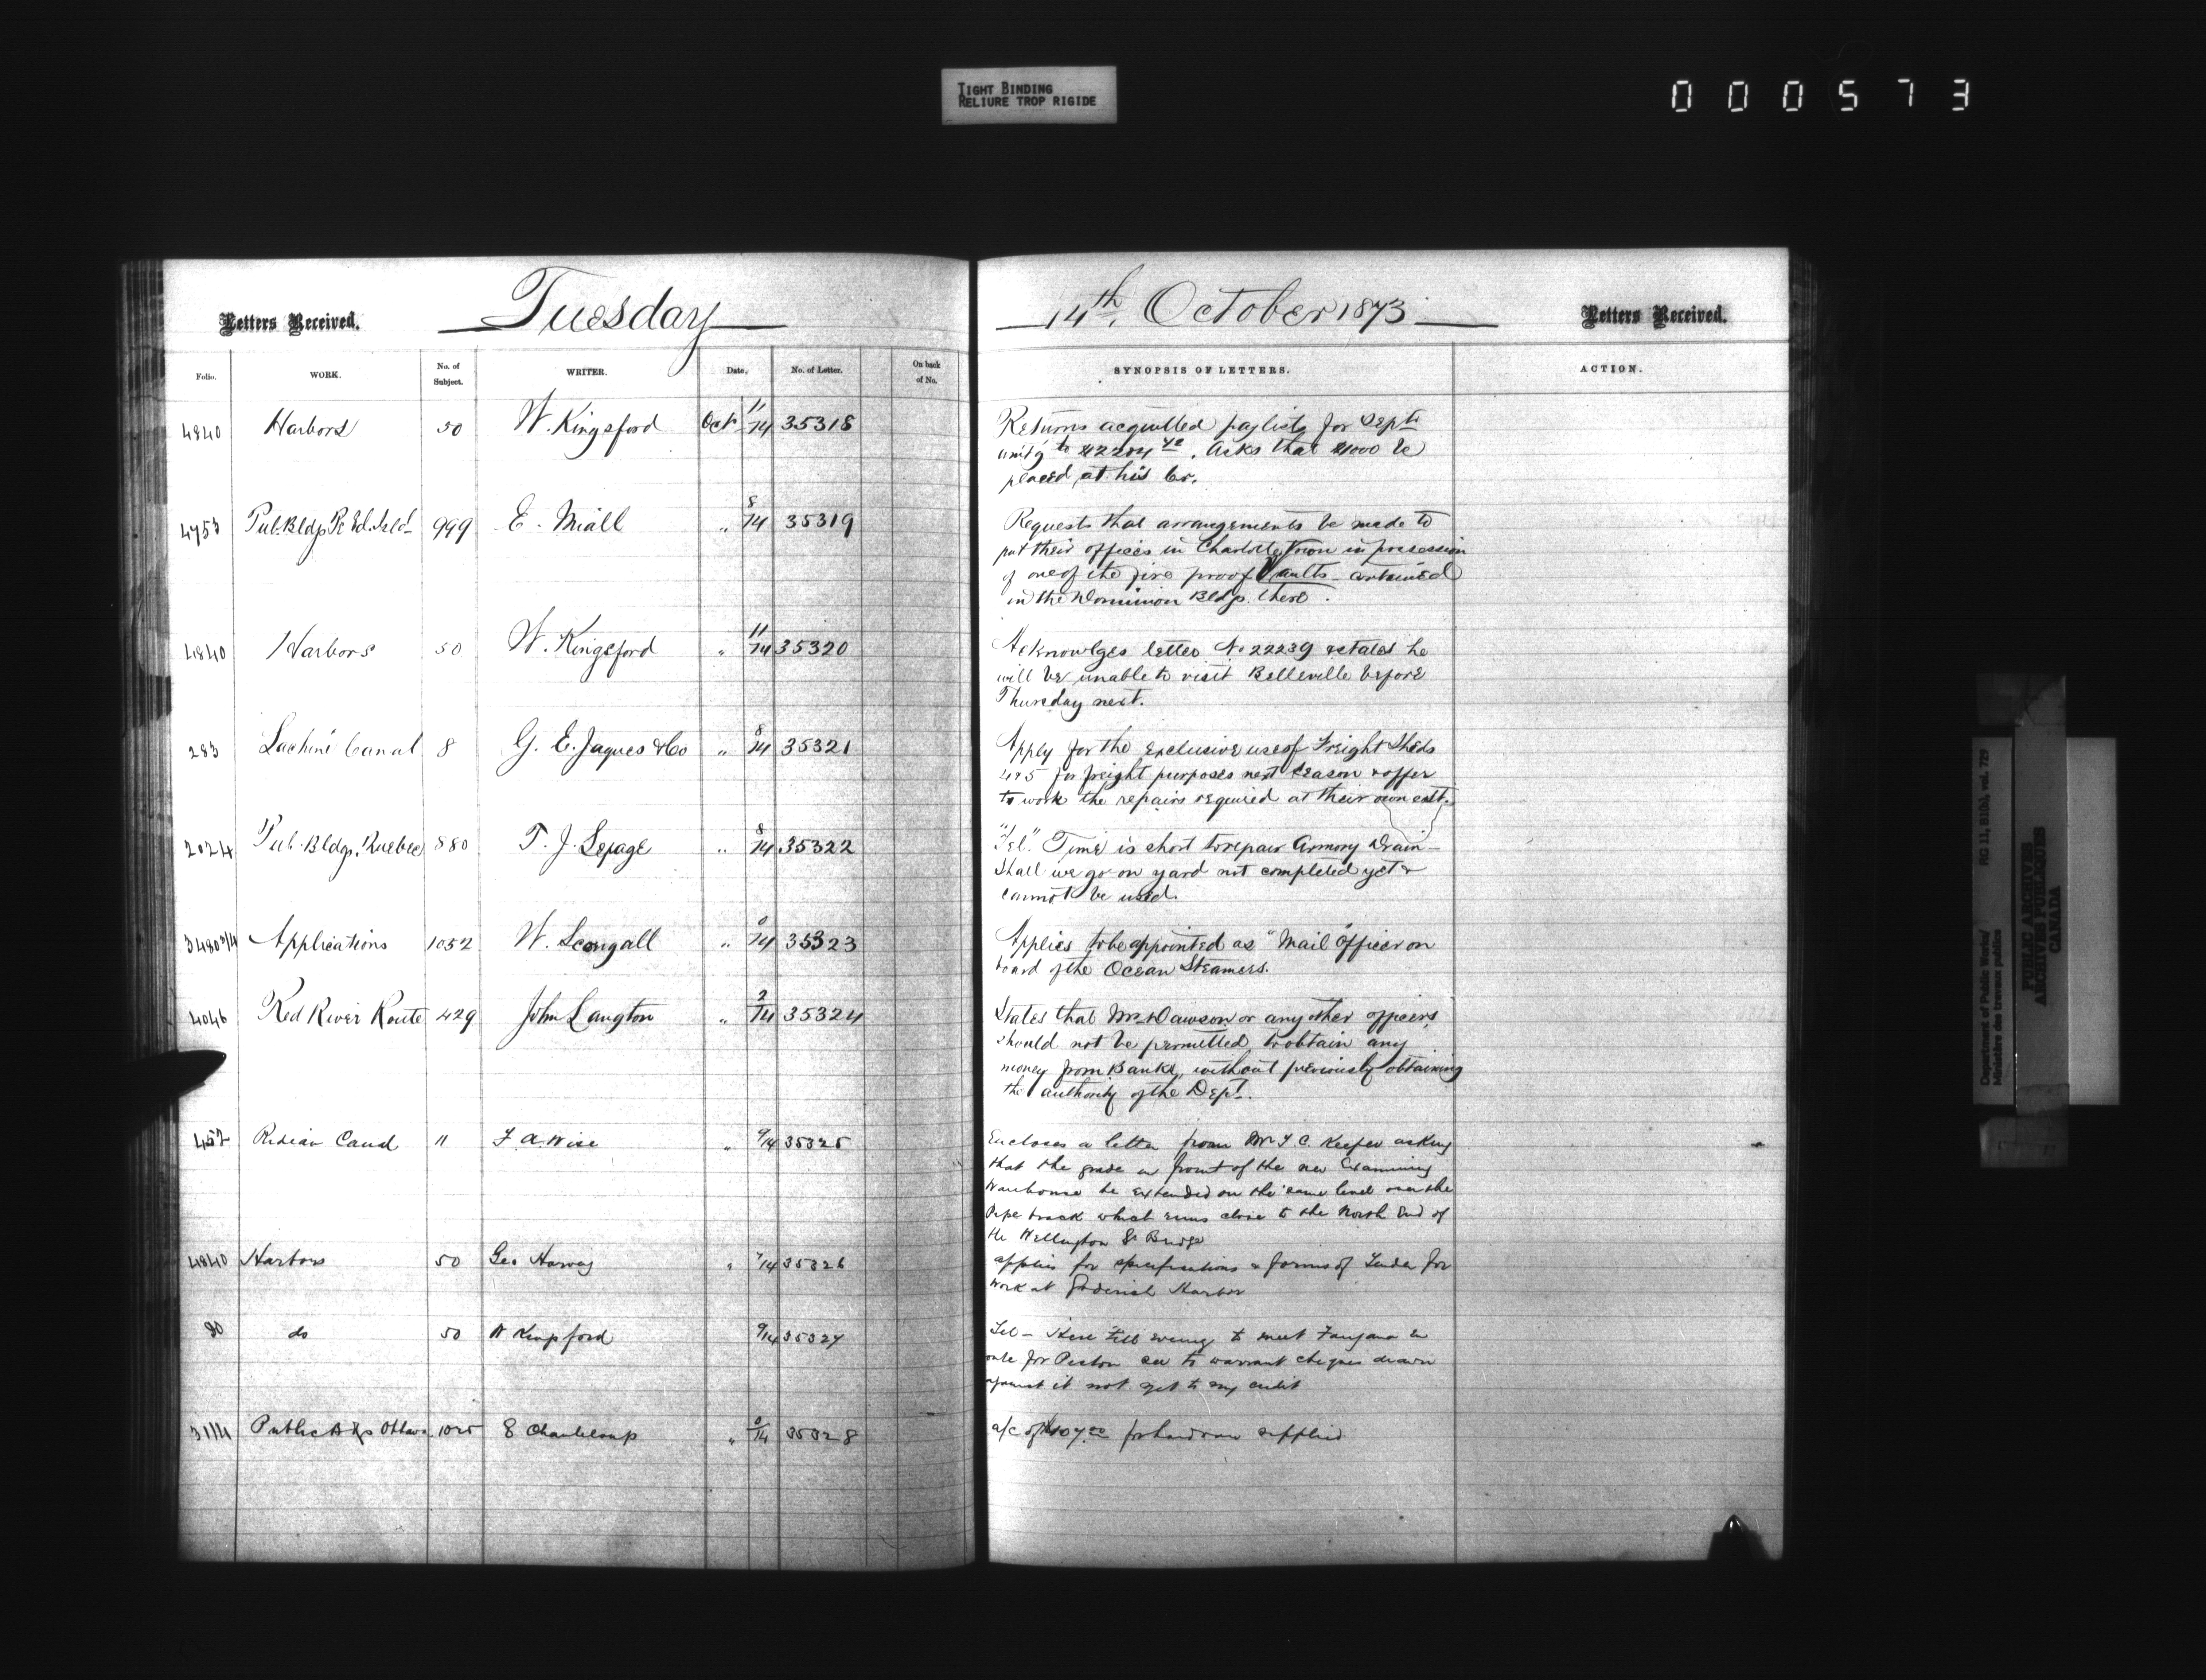 TIGHT BINDING
RELIURE TROP RIGIDE
000573
Letters Received.
Tuesday
14th. October 1873
Letters Received.
Folio. WORK. No. of Subject. WRITER. Date. No. of Letter. On back of No.
SYNOPSIS OF LETTERS. ACTION.
4840 Harbors 50 W. Kingsford Oct 11/14 35318
Returns acquitted paylists for Sept
amt'g to . Asks that be
placed at his Cr.
4753 Pub. Bldgs Pr Ed. Isld 999 E. Miall " 8/14 35319
Requests that arrangements be made to
put their offices in Charlotte Town in possession
of one of the fire proof Vaults contained
in the Dominion Bldg. there.
4840 Harbors 50 W. Kingsford " 11/14 35320
Acknowlges letter No 22239 & states he
will be unable to visit Belleville before
Thursday next.
283 Lachine Canal 8 G. E. Jaques & Co " 8/14 35321
Apply for the exclusive use of Freight Sheds
4 & 5 for freight purposes next season & offer
to work the repairs required at their own cost.
2024 Pub. Bldgs. Quebec 880 T. J. Lepage " 8/14 35322
"Tel." Time is short to repair Armory Drain-
Shall we go on yard not completed yet &
cannot be used.
3480 3/4 Applications 1052 W. " /14 35323
Applies to be appointed as "Mail Officer on
board of the Ocean Steamers.
4046 Red River Route 429 John Langton " 2/14 35324
States that Mr. Dawson or any other officers
should not be permitted to obtain any
money from Banks, without previously obtaining
the authority of the Dept.
457 Rideau Canal 11 F. A. Wise " 9/14 35325
Encloses a letter from Mr T. C. Keefer asking
that the grade in front of the new Examining
Warehouse be extended on the same level over the
Pipe track which runs close to the North End of
the Wellington St Bridge
4840 Harbors 50 Geo Harvey " 7/14 35326
applies for specifications & forms of Tender for
work at Goderich Harbor
do 50 W Kingsford 9/14 35327
Tel - Here till evening to meet en
route for Picton see to warrant cheques drawn
against it not yet to my credit
3114 Public Bldgs Ottawa 1025 E Chanteloup " /14 35328
a/c of for hardware supplied
Department of Public Works/
Ministère des travaux publics
RG 11, B1(b), vol. 729
PUBLIC ARCHIVES
ARCHIVES PUBLIQUES
CANADA